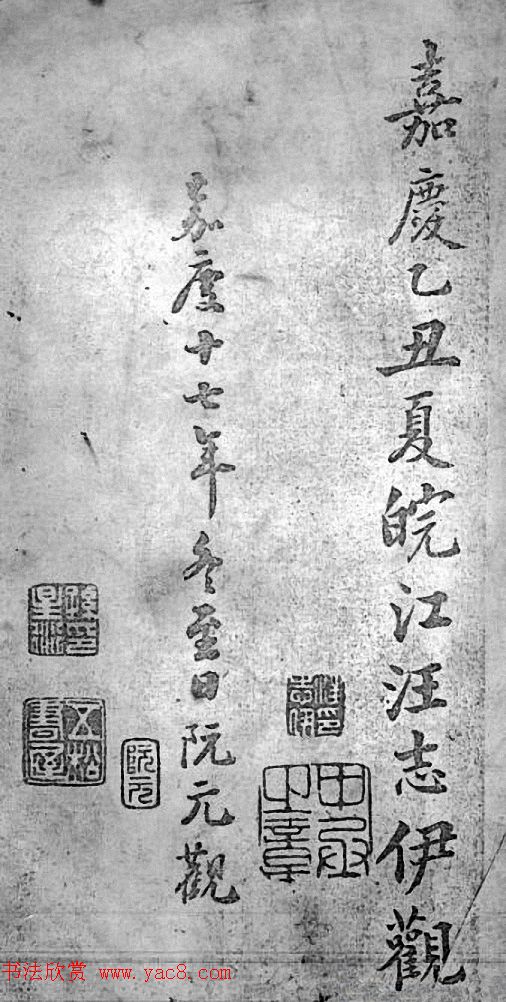 嘉慶乙丑夏皖江汪志伊觀
嘉慶十七年冬至日阮元觀
阮元
五松書屋
书法欣赏 www.yac8.com